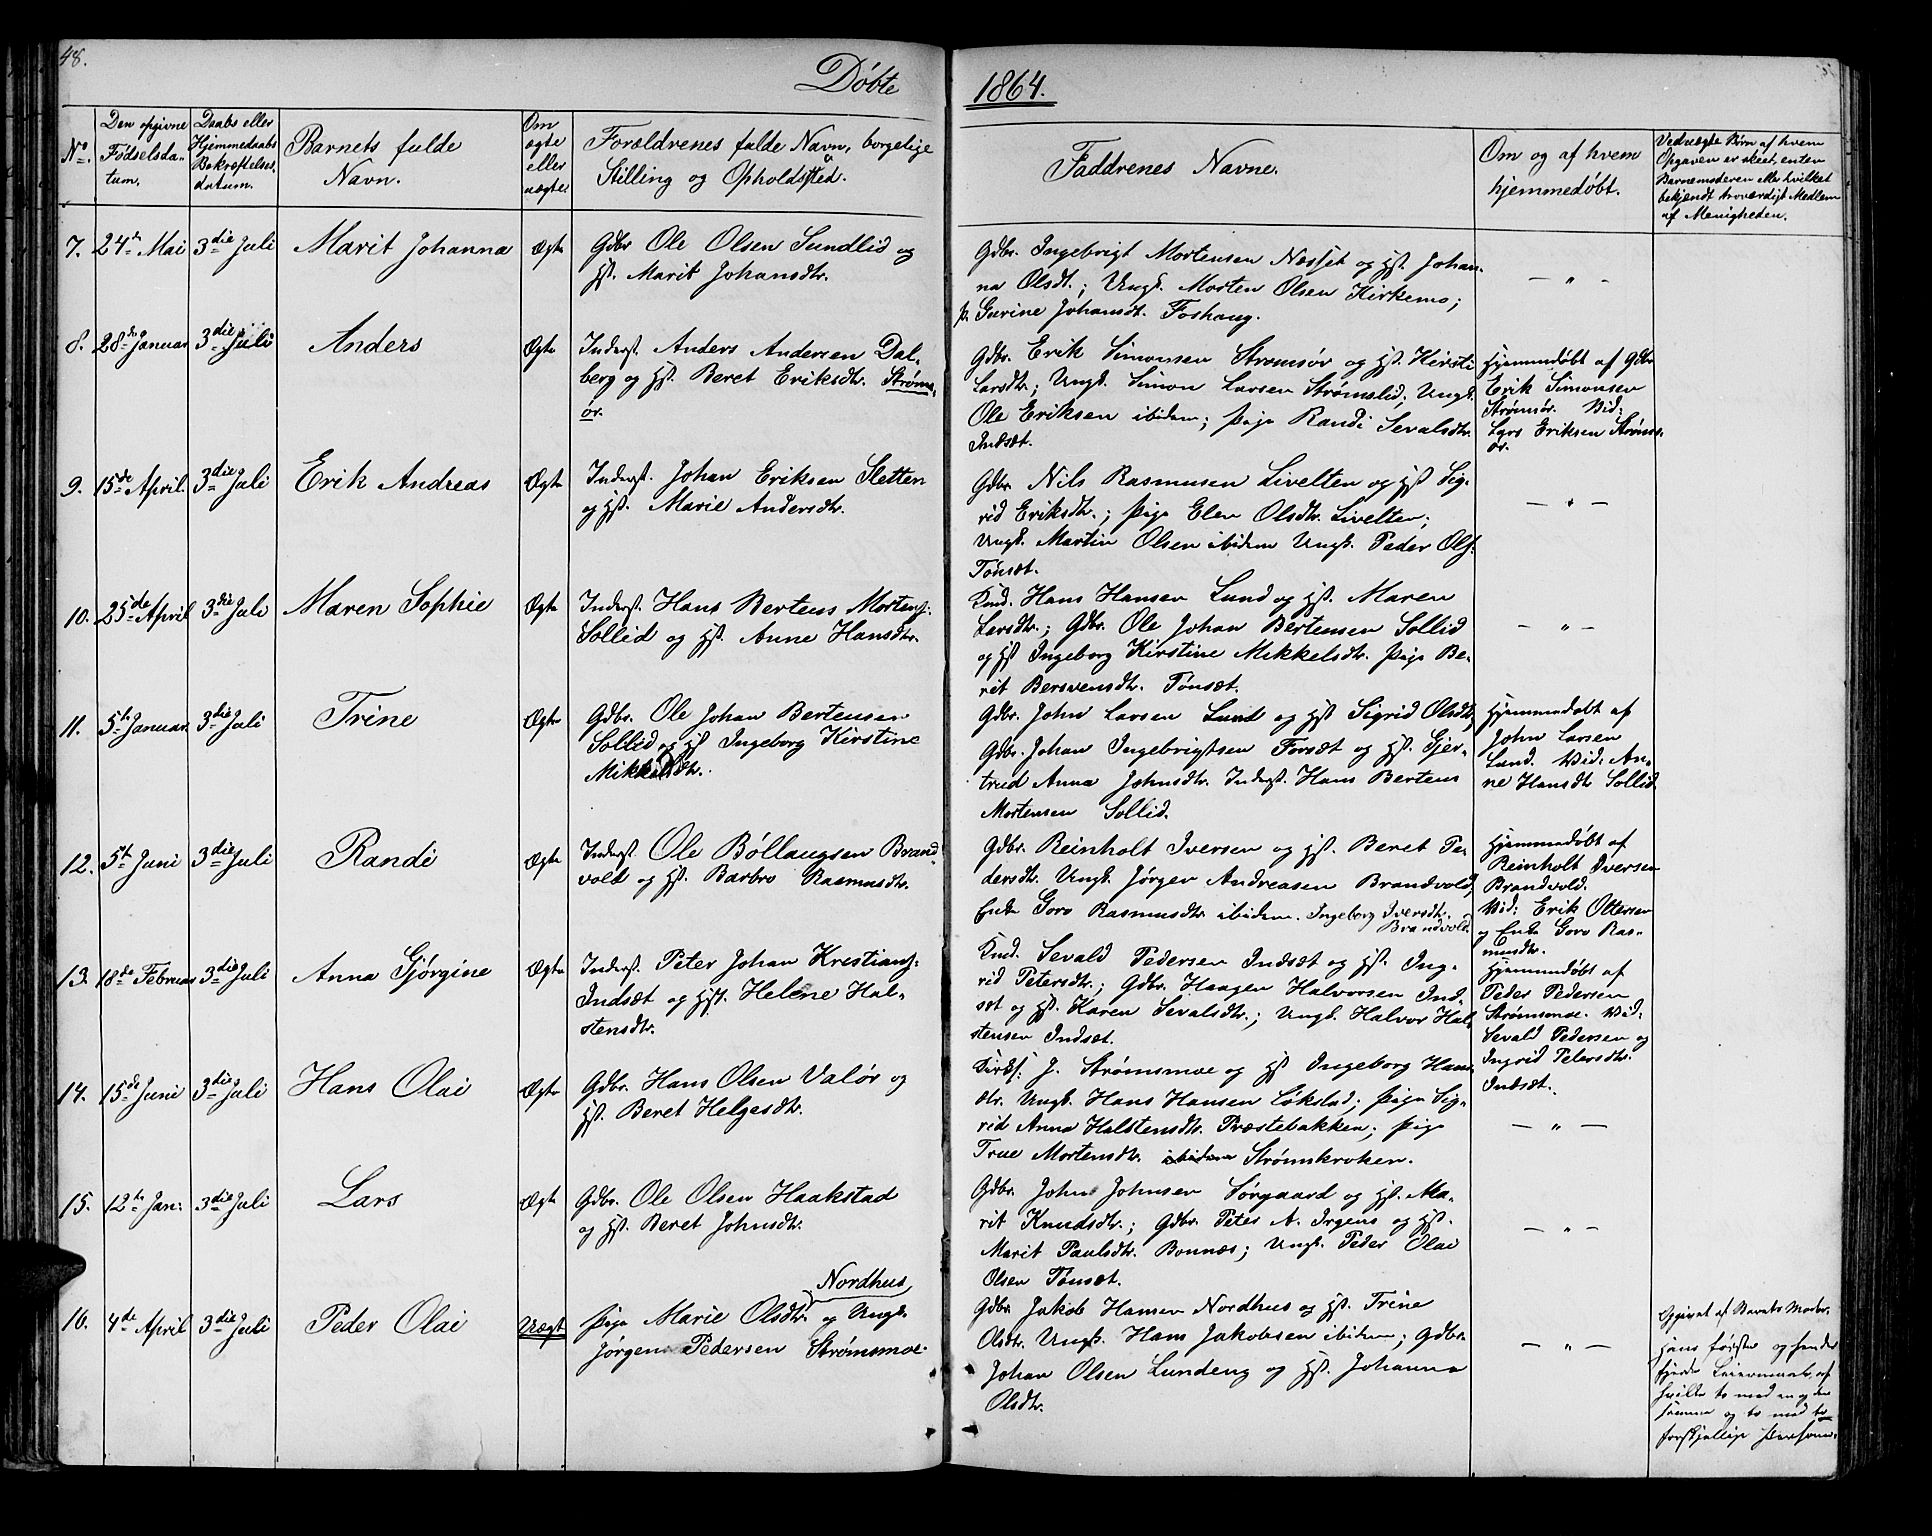 48.
Døbte
1864.
No.
Den opgivne
Fødselsda-
tum.
Daabs eller
Hjemmedaabs
Bekræftelses
datum.
Barnets fulde
Navn.
Om
ægte
eller
uægte
Forældrenes fulde Navn, borgelige
Stilling og Opholdsted.
Faddrenes Navne.
Om og af hvem
hjemmedøbt.
Ved uægte Børn af hvem
Opgaven er skeet, enten
Barnemoderen eller hvilket
bekjendt troværdigt Medlem
af Menigheden.
7. 24de Mai 3die Juli Marit Johanna Ægte
Gdbr Ole Olsen Sundlid og
Hst. Marit Johansdtr.
Gdbr. Ingebrigt Mortensen Næsset og Hst. Johan-
na Olsdt.; Ungk. Morten Olsen Kirkemo;
p. Gurine Johansdt. Foshaug.
— " —
8. 28de Januar 3die Juli Anders Ægte
Inderst. Anders Andersen Dal-
berg og Hst. Beret Eriksdtr. Strøms-
ør.
Gdbr. Erik Simonsen Strømsør og Hst. Kirsti
Larsdtr; Ungk. Simon Larsen Strømslid; Ungk.
Ole Eriksen ibidem; Pige Randi Sevalsdtr.
Indsæt.
Hjemmedøbt af Gdbr
Erik Simonsen
Strømsør. Vid:
Lars Eriksen Strøms-
ør.
9. 15de April. 3die Juli Erik Andreas Ægte
Inderst. Johan Eriksen Sletten
og Hst. Marie Andersdtr.
Gdbr. Nils Rasmusen Livelten og Hst Sig-
rid Eriksdtr.; Pige Elen Olsdtr. Livelten;
Ungk. Martin Olsen ibidem Ungk. Peder Ols.
Tønsæt.
— " —
10. 25de April 3die Juli Maren Sophie Ægte
Inderst. Hans Bertens Mortens:
Sollid og Hst. Anne Hansdtr.
Kmd. Hans Hansen Lund og Hst. Maren
Larsdtr.; Gdbr. Ole Johan Bertensen Sollid
og Hst Ingeborg Kirstine Mikkelsdtr. Pige Be-
rit Bersvensdtr. Tønsæt.
— " —
11. 5te Januar 3die Juli Trine Ægte
Gdbr. Ole Johan Bertensen
Sollid og Hst Ingeborg Kirstine
Mikkelsdtr.
Gdbr. John Larsen Lund og Hst Sigrid Olsdtr;
Gdbr. Johan Ingebrigtsen Forsæt og Hst. Gjer-
trud Anna Johnsdtr. Inderst. Hans Bertens
Mortensen Sollid.
Hjemmedøbt af
John Larsen
Lund. Vid: An-
ne Hansdtr Sollid.
12. 5te Juni 3die Juli Randi Ægte
Inderst. Ole Bøllaugsen Brand-
vold og Hst. Barbro Rasmusdtr.
Gdbr. Reinholt Iversen og Hst. Beret Pe-
dersdtr. Ungk. Jørgen Andreasen Brandvold,
Enke Goro Rasmusdtr. ibidem. Ingeborg Iversdtr.
Brandvold
Hjemmedøbt af
Reinholt Iversen
Brandvold.
Vid: Erik Ottersen
og Enke Goro Ras-
musdtr.
13. 18de Februar 3die Juli Anna Gjørgine Ægte
Inderst. Peter Johan Kristians:
Indsæt og Hst. Helene Hal-
stensdtr.
Kmd. Sevald Pedersen Indsæt og Hst. Ing-
rid Petersdtr.; Gdbr. Haagen Halvorsen Ind-
sæt og Hst. Karen Sevalsdtr.; Ungk. Halvor Hal-
stensen Indsæt.
Hjemmedøbt af
Peder Pedersen
Strømsmoe. Vid.
Sevald Pedersen og
Ingrid Petersdtr.
Indsæt.
14. 15de Juni 3die Juli Hans Olai Ægte
Gdbr. Hans Olsen Valør og
Hst. Beret Helgesdtr.
Kirks: J. Strømsmoe og Hst Ingeborg Hans-
dtr. Ungk. Hans Hansen Løkstad; Pige Sig-
rid Anna Halstensdtr. Præstebakken; Pige
True Mortensdtr. ibidem Strømskroken.
— " —
15. 12te Jan: 3die Juli Lars Ægte
Gdbr. Ole Olsen Haakstad
og Hst. Beret Johnsdtr.
Gdbr. John Johnsen Sørgaard og Hst. Ma-
rit Knudsdtr.; Gdbr. Peter A. Irgens og Hst.
Marit Paulsdtr. Bonnæs; Ungk. Peder Olai
Olsen Tønsæt.
— " —
16. 4de April 3die Juli Peder Olai Uægte
Nordhus
Pige Marie Olsdtr. og Ungk.
Jørgen Pedersen Strømsmoe.
Gdbr. Jakob Hansen Nordhus og Hst. Trine
Olsdtr. Ungk. Hans Jakobsen ibidem; Gdbr.
Johan Olsen Lundeng og Hst. Johanna
Olsdtr.
— " —
Opgivet af Barnets Moder.
Hans første og hendes
fjerde Leiermaal, af
hvilke to med en og den
samme og to med to
forskjellige Personer.